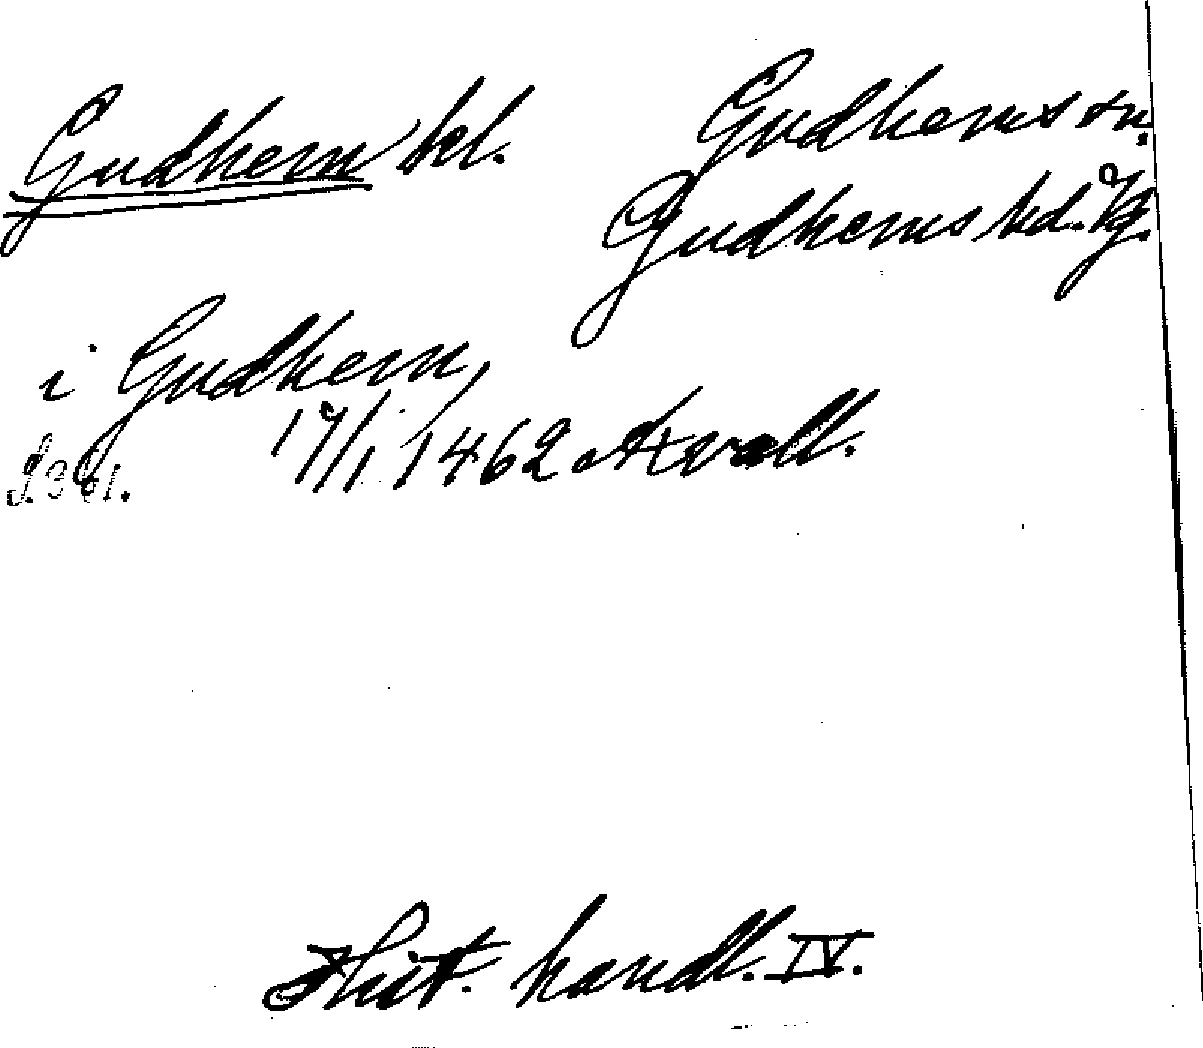 Gudhem kl.
Gudhems sn.
Gudhems hd. Vg.
i Gudhem
17/1 1462 Axvall.
Hist. handl. IV.